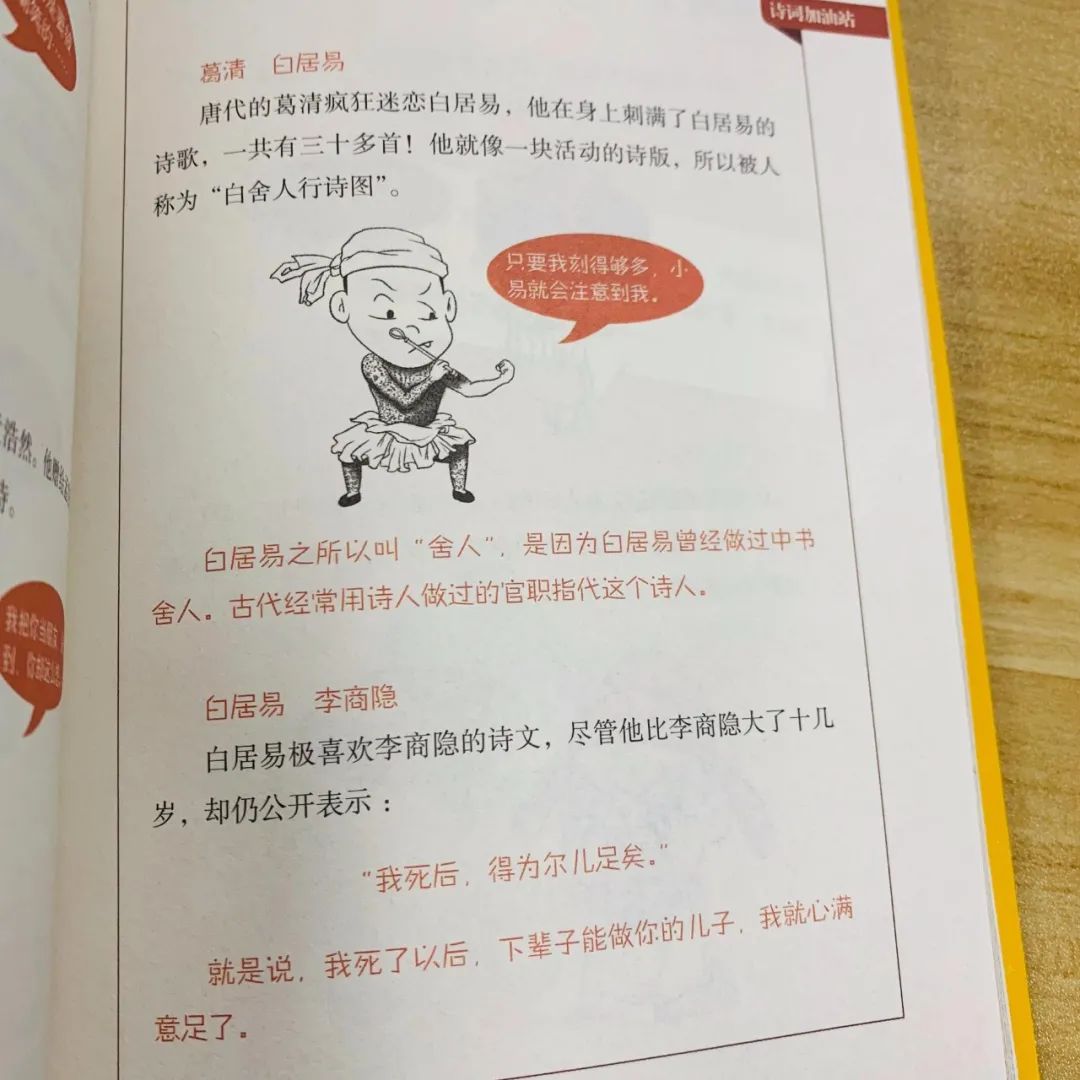 诗词加油站
葛清 白居易
唐代的葛清疯狂迷恋白居易，他在身上刺满了白居易的
诗歌，一共有三十多首！他就像一块活动的诗版，所以被人
称为“白舍人行诗图”。
只要我刻得够多，小
易就会注意到我。
白居易之所以叫“舍人”，是因为白居易曾经做过中书
舍人。古代经常用诗人做过的官职指代这个诗人。
白居易 李商隐
白居易极喜欢李商隐的诗文，尽管他比李商隐大了十几
岁，却仍公开表示：
“我死后，得为尔儿足矣。”
就是说，我死了以后，下辈子能做你的儿子，我就心满
意足了。
浩然。他
诗。
我把你当朋友
到，你却